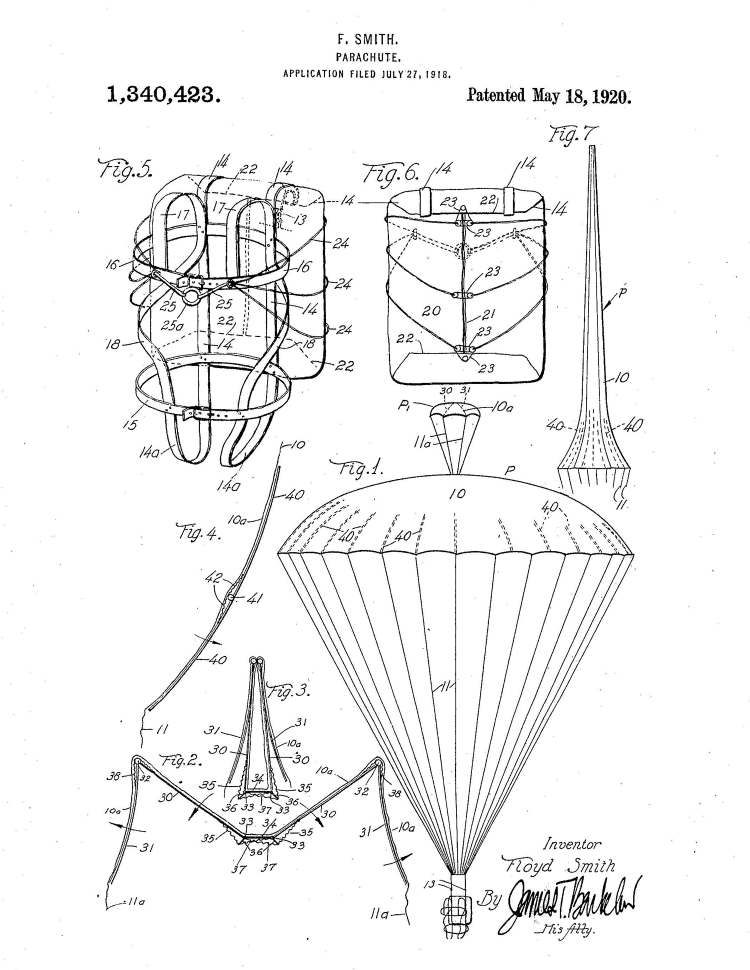 F. SMITH.
PARACHUTE.
APPLICATION FILED JULY 27, 1918.
1,340,423.
Patented May 18, 1920.
Fig.5.
14
22
14
17
17
13
14
24
16
16
24
25
25
25a
14
24
22
18
14
18
22
15
14a
14a
Fig.6.
14
14
23
22
14
23
23
23
20
21
22
23
23
Fig.7
P
10
40
40
11
30
31
P1
10a
11a
Fig.1.
P
10
40
40
40
11
13
Fig.4.
10
40
10a
42
41
40
11
Fig.3.
31
31
10a
30
30
34
35
35
36
36
33
37
33
Fig.2.
38
32
10a
30
31
11a
33
34
35
35
36
33
37
37
30
10a
32
38
31
10a
11a
Inventor
Floyd Smith
By
His Atty.